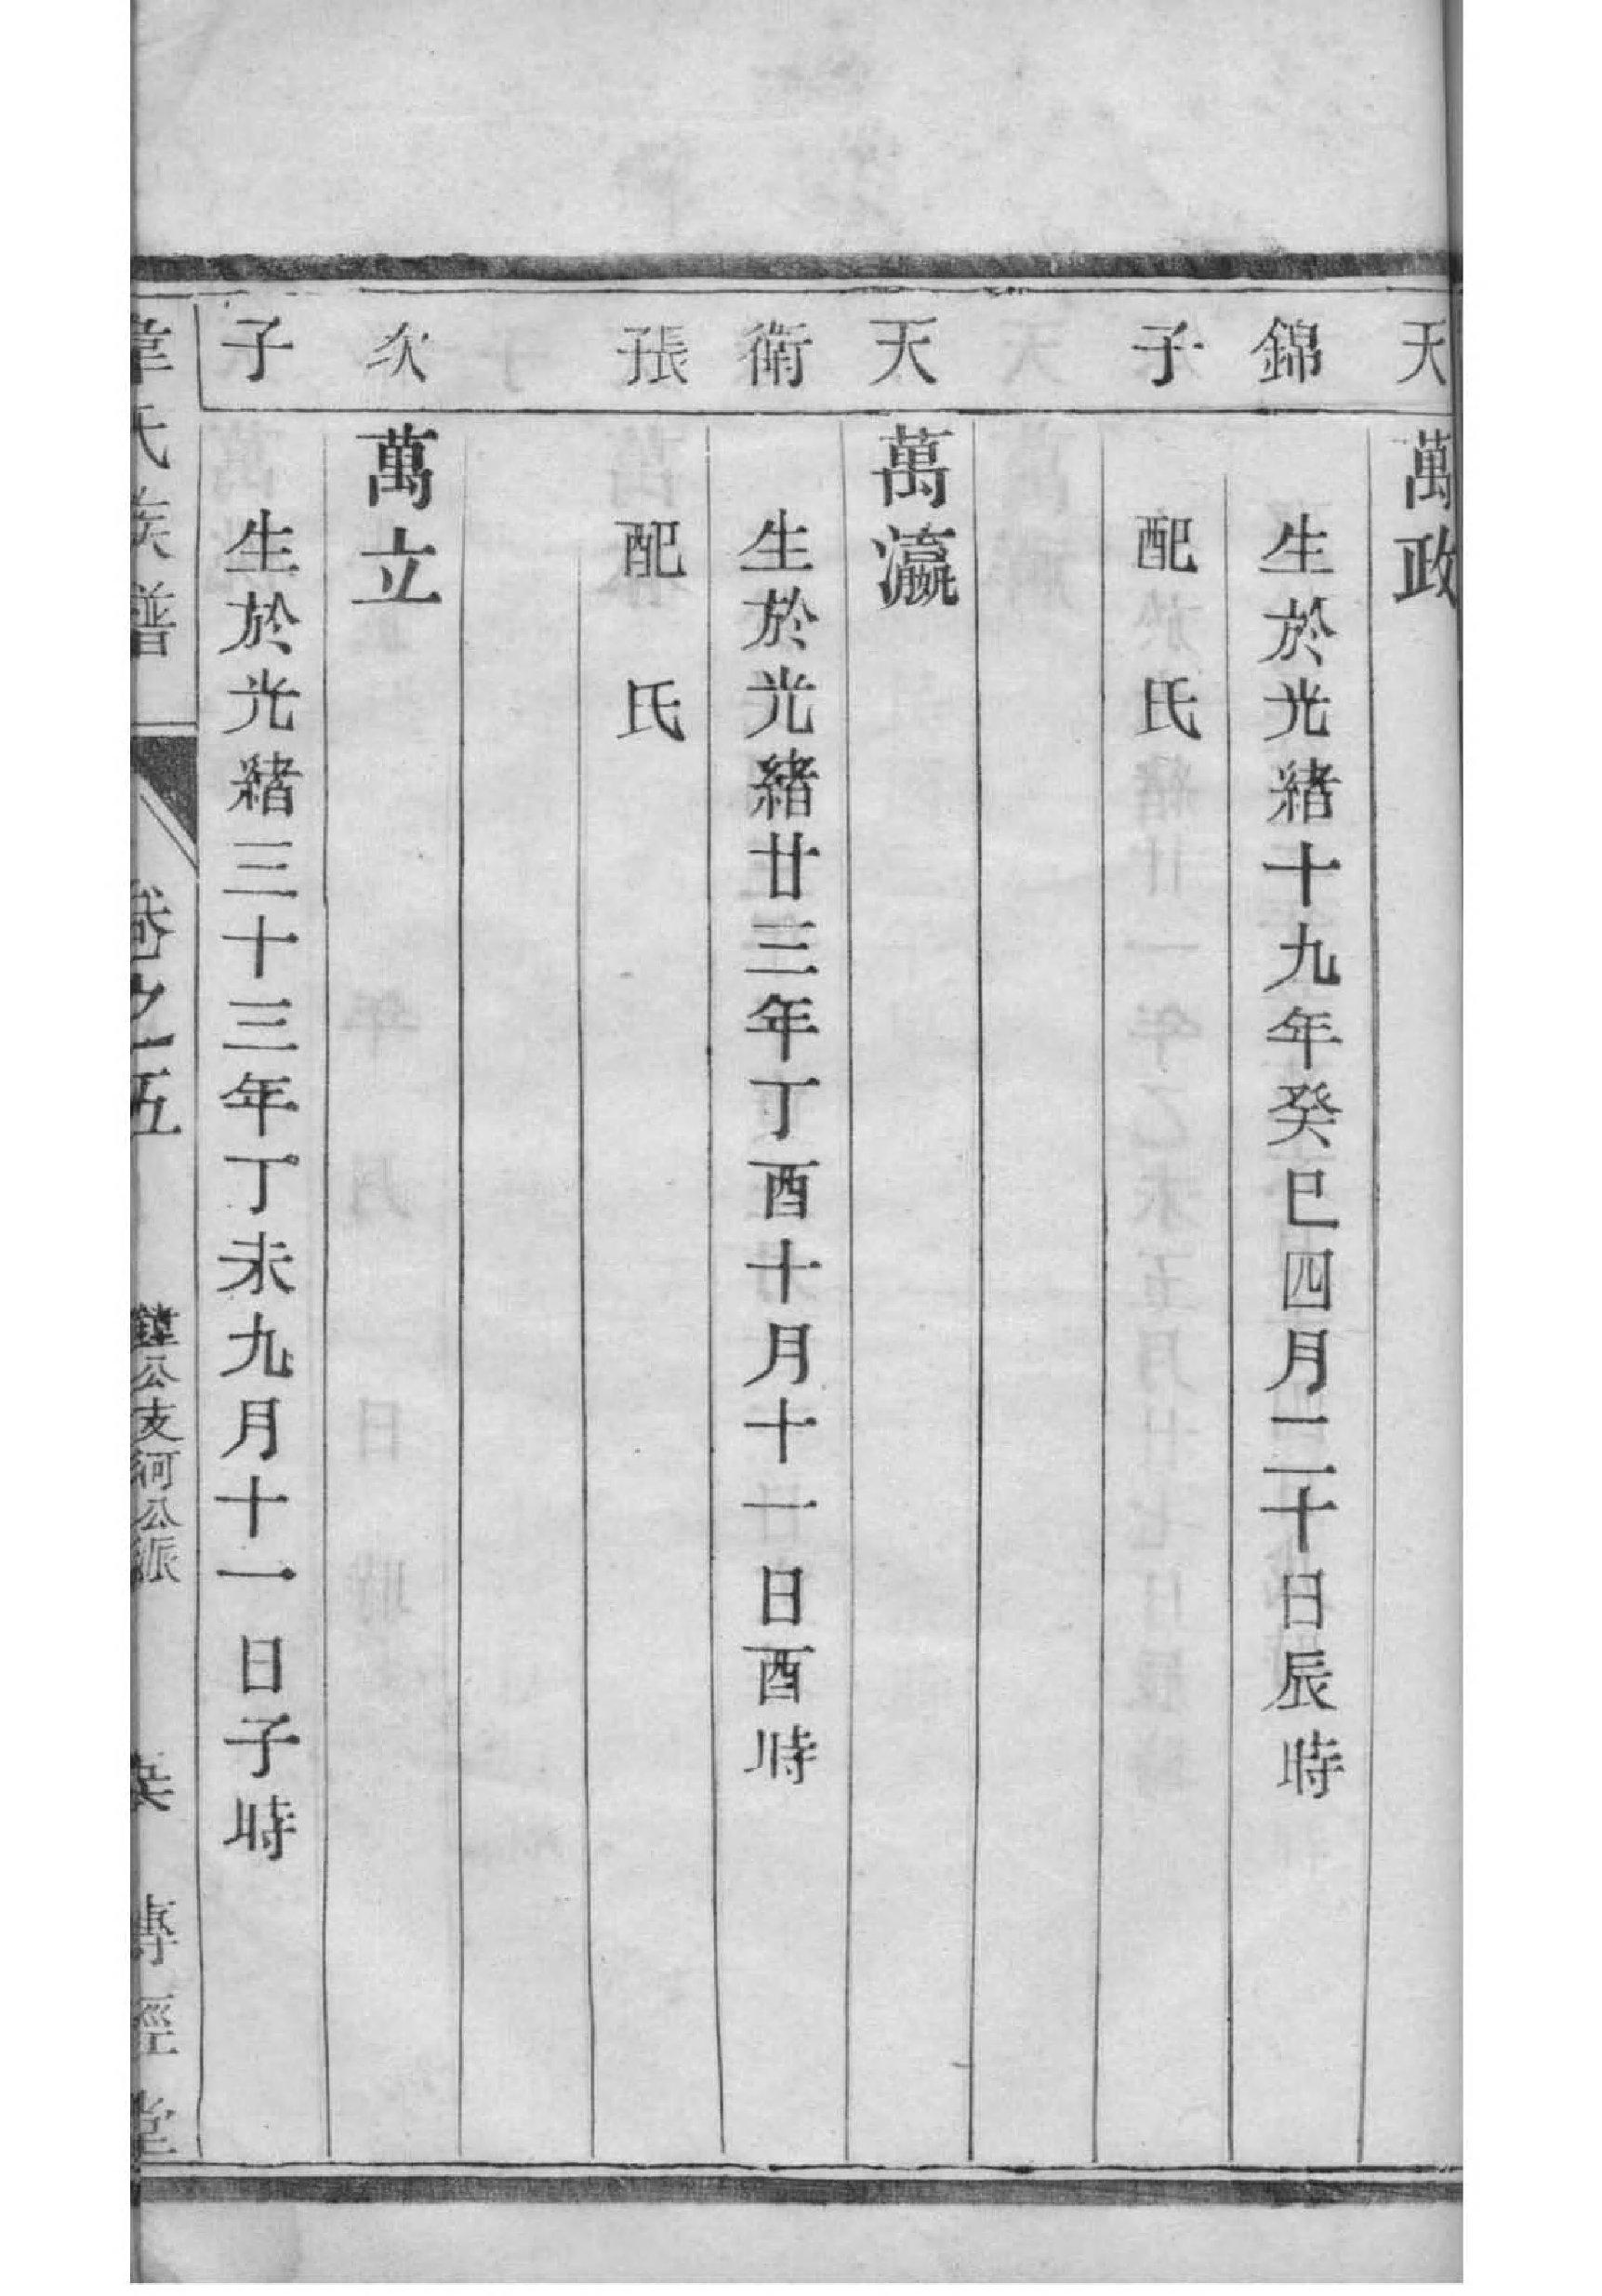 天 萬政
錦 生於光緒十九年癸巳四月二十日辰時
子 配 氏
天 萬瀛
衛 生於光緒廿三年丁酉十月十一日酉時
張 配 氏
次 萬立
子 生於光緒三十三年丁未九月十一日子時
韋氏族譜 卷之五 公支河公派 傳經堂